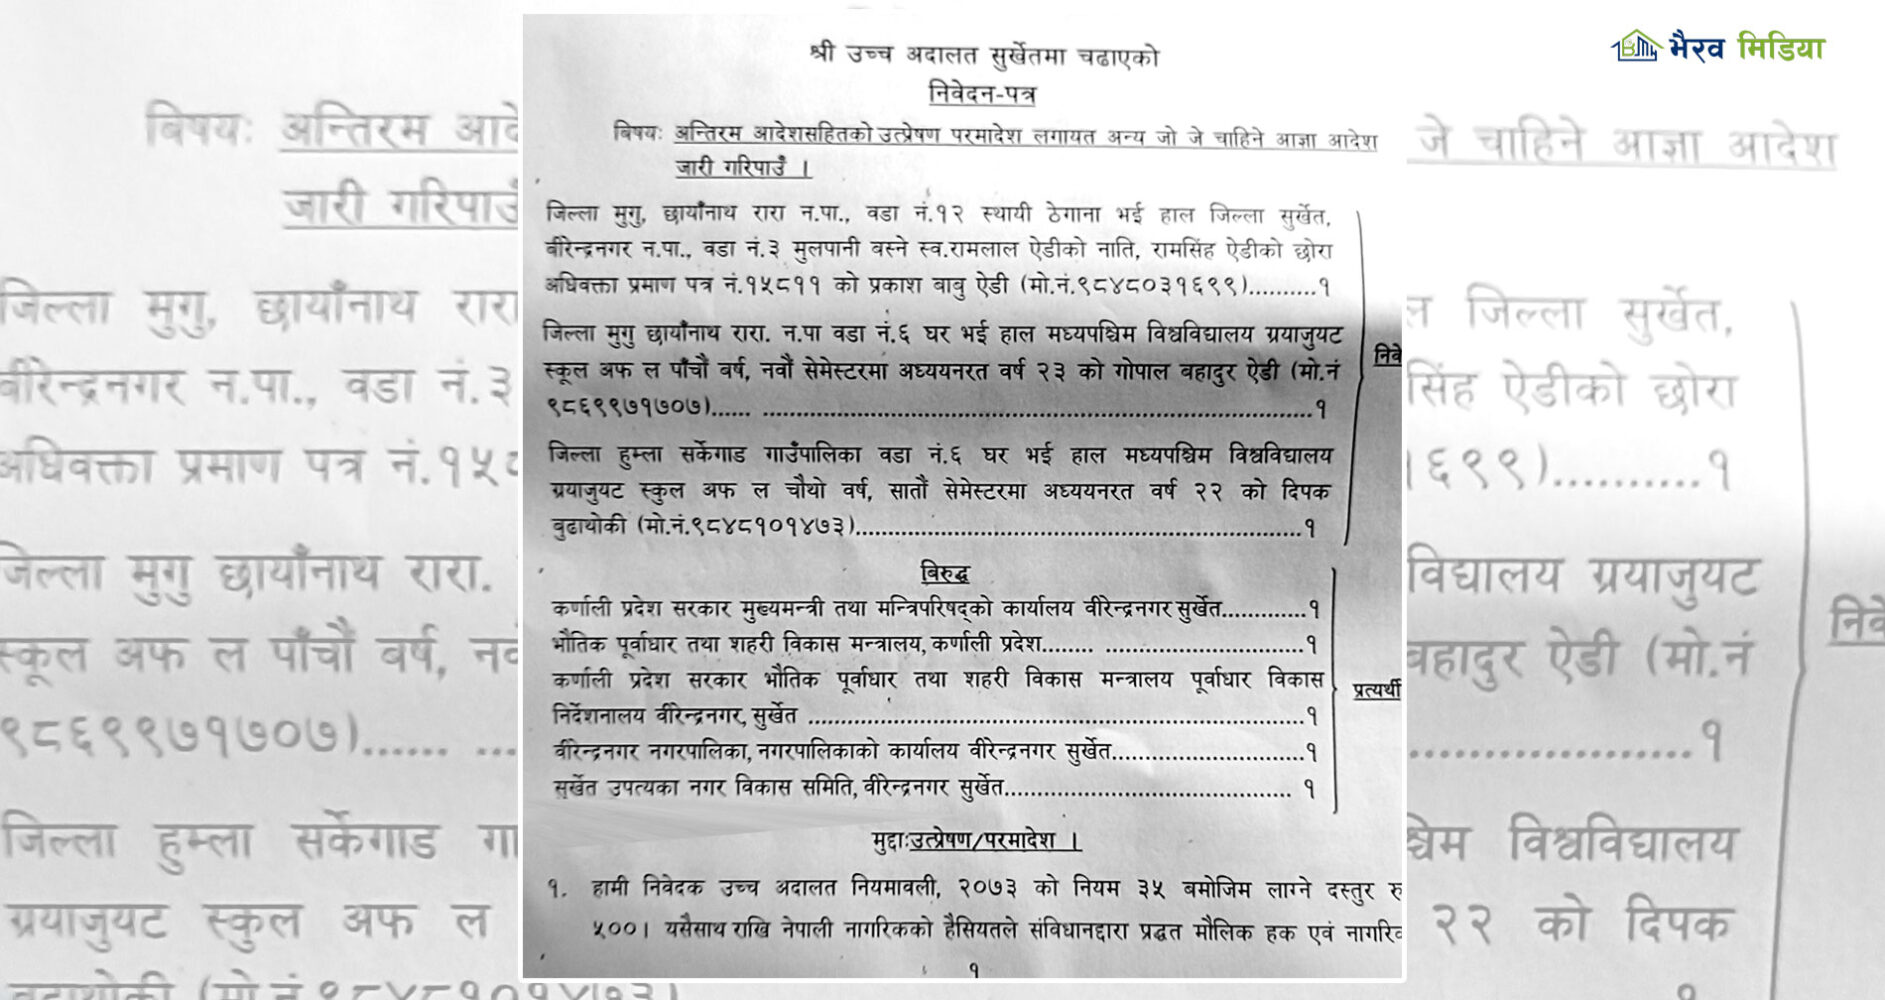 भैरव मिडिया
श्री उच्च अदालत सुर्खेतमा चढाएको
निवेदन-पत्र
बिषयः अन्तिरम आदेशसहितको उत्प्रेषण परमादेश लगायत अन्य जो जे चाहिने आज्ञा आदेश
जारी गरिपाउँ ।
जिल्ला मुगु, छायाँनाथ रारा न.पा., वडा नं.१२ स्थायी ठेगाना भई हाल जिल्ला सुर्खेत,
बीरेन्द्रनगर न.पा., वडा नं.३ मुलपानी बस्ने स्व.रामलाल ऐडीको नाति, रामसिंह ऐडीको छोरा
अधिवक्ता प्रमाण पत्र नं.१५८११ को प्रकाश बाबु ऐडी (मो.नं.९८४८०३१६९९)..........१
जिल्ला मुगु छायाँनाथ रारा. न.पा वडा नं.६ घर भई हाल मध्यपश्चिम विश्वविद्यालय ग्रयाजुयट
स्कूल अफ ल पाँचौ बर्ष, नवौं सेमेस्टरमा अध्ययनरत वर्ष २३ को गोपाल बहादुर ऐडी (मो.नं
९८६९९७१७०७)...... ....................................................................................१
निवे
जिल्ला हुम्ला सर्केगाड गाउँपालिका वडा नं.६ घर भई हाल मध्यपश्चिम विश्वविद्यालय
ग्रयाजुयट स्कुल अफ ल चौथो वर्ष, सातौं सेमेस्टरमा अध्ययनरत वर्ष २२ को दिपक
बुढाथोकी (मो.नं.९८४८१०१४७३)....................................................................१
बिरुद्ध
कर्णाली प्रदेश सरकार मुख्यमन्त्री तथा मन्त्रिपरिषद्को कार्यालय वीरेन्द्रनगर सुर्खेत.............१
भौतिक पूर्वाधार तथा शहरी विकास मन्त्रालय, कर्णाली प्रदेश........ ..............................१
कर्णाली प्रदेश सरकार भौतिक पूर्वाधार तथा शहरी विकास मन्त्रालय पूर्वाधार विकास
निर्देशनालय वीरेन्द्रनगर, सुर्खेत ............................................................................१
प्रत्यर्थी
वीरेन्द्रनगर नगरपालिका, नगरपालिकाको कार्यालय वीरेन्द्रनगर सुर्खेत.............................१
सुर्खेत उपत्यका नगर विकास समिति, वीरेन्द्रनगर सुर्खेत............................................ १
मुद्दाः उत्प्रेषण/परमादेश ।
१. हामी निवेदक उच्च अदालत नियमावली, २०७३ को नियम ३५ बमोजिम लाग्ने दस्तुर रु
५००। यसैसाथ राखि नेपाली नागरिकको हैसियतले संविधानद्दारा प्रद्धत मौलिक हक एवं नागरिक
१